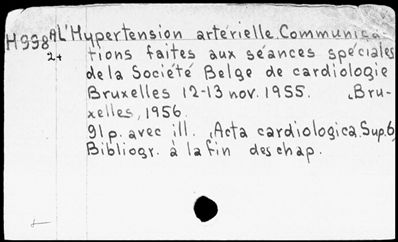 H998A L'Hypertension artérielle. Communica-
24 tions faites aux séances spéciales
de la Société Belge de cardiologie
Bruxelles 12-13 nov. 1955. Bru-
xelles, 1956.
91p. avec ill. (Acta cardiologica. Sup. 6)
Bibliogr. à la fin des chap.